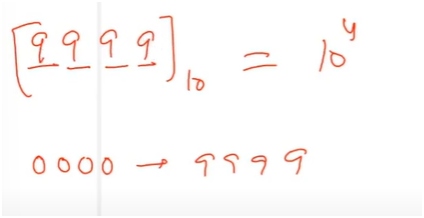 [9 9 9 9]₁₀ = 10⁴
0000 → 9999